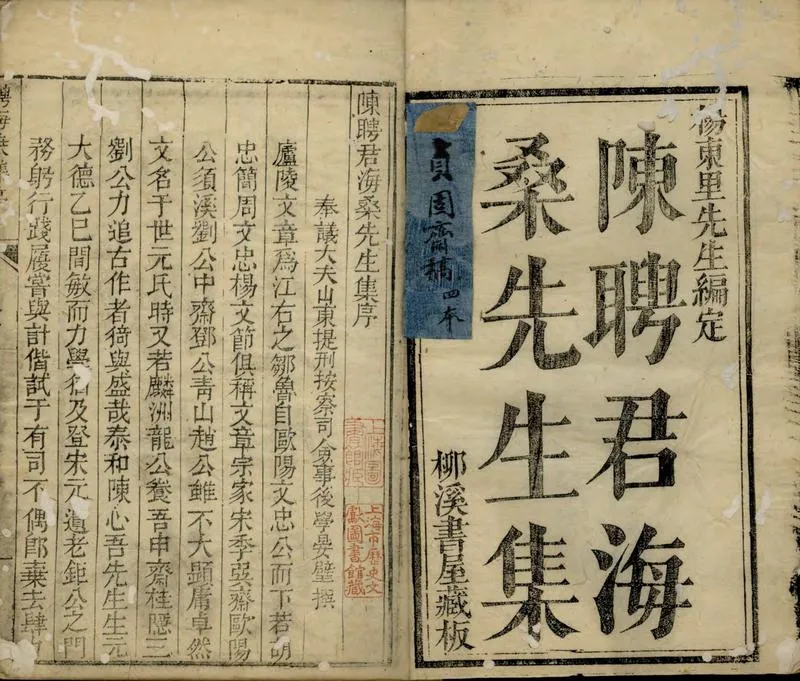 楊東里先生編定
陳聘君海
桑先生集
柳溪書屋藏板
貞固齋稿四本
陳聘君海桑先生集序
奉議大夫山東提刑按察司僉事後學晏璧撰
廬陵文章爲江右之鄒魯自歐陽文忠公而下若胡
忠簡周文忠楊文節俱稱文章宗家宋季巽齋歐陽
公須溪劉公中齋鄧公青山趙公雖不大顯庸卓然
文名于世元氏時又若麟洲龍公養吾申齋桂隱三
劉公力追古作者猗與盛哉泰和陳心吾先生生元
大德乙巳間敏而力學名及登宋元遺老鉅公之門
務躬行踐履嘗與計偕試于有司不偶郎棄去肆
上海圖
書館藏
上海市歷史文
獻圖書館藏